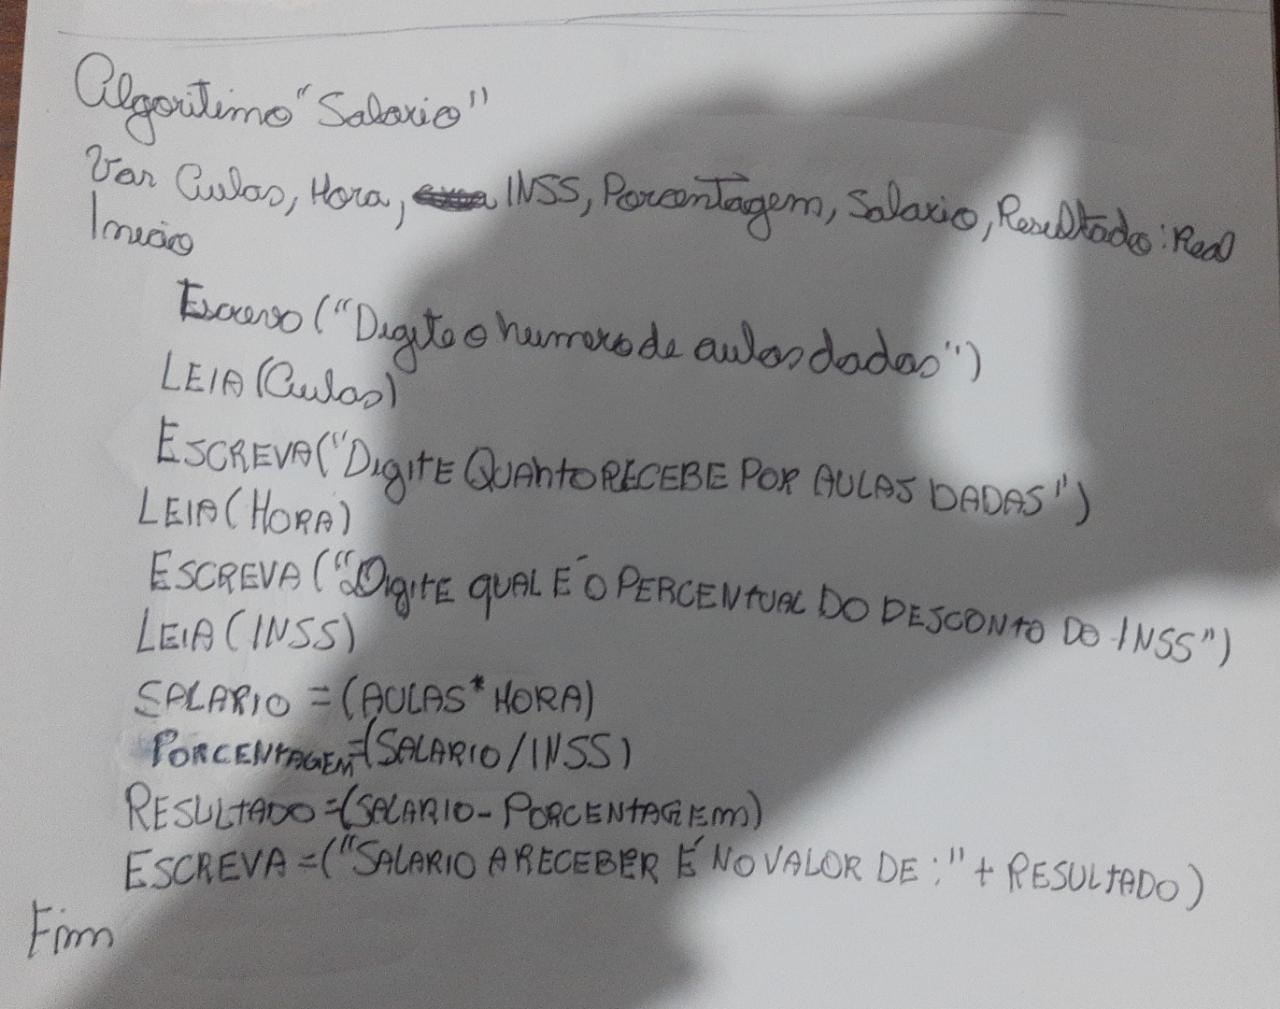 Algoritimo "Salario"
Var Aulas, Hora, INSS, Porcentagem, Salario, Resultado: Real
Inicio
Escreva ("Digite o numero de aulas dadas")
LEIA (Aulas)
ESCREVA ("DigitE QUANTO RECEBE POR AULAS DADAS")
LEIA (HORA)
ESCREVA ("DigitE QUAL É O PERCENTUAL DO DESCONTO DO INSS")
LEIA (INSS)
SALARIO = (AULAS * HORA)
PORCENTAGEM = (SALARIO / INSS)
RESULTADO = (SALARIO - PORCENTAGEM)
ESCREVA = ("SALARIO A RECEBER É NO VALOR DE : " + RESULTADO)
Fim